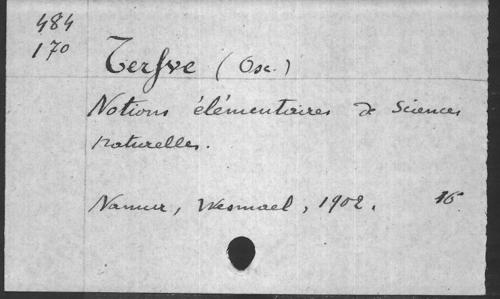 484
170
Terfve (Osc.)
Notions élémentaires de Sciences
naturelles.
Namur, Wesmael, 1902. 16